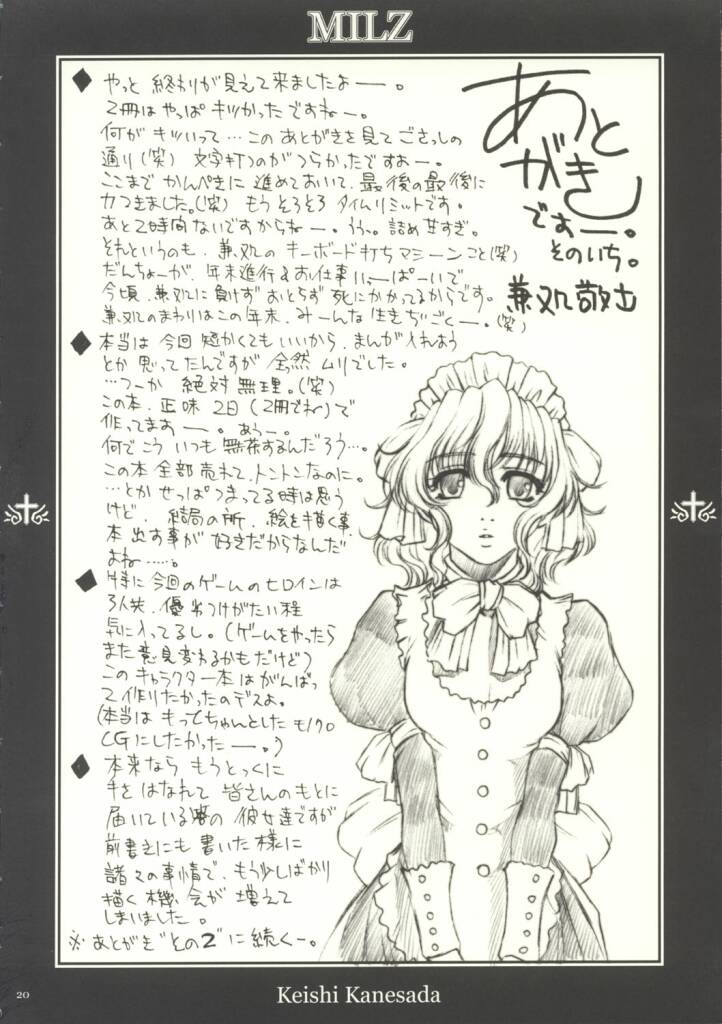 MILZ
あとがき
ですぉー。
そのいち。
兼処敬士
◆やっと 終わりが見えて来ましたよー。
2冊は やっぱ キツかった ですねー。
何が キツいって…この あとがきを 見て ごさっしの
通り(笑) 文字打つのが つらかったですぉー。
ここまで かんぺきに 進めておいて、最後の最後に
力つきました。(笑) もう そろそろ タイムリミットです。
あと2時間 ないですからねー。うぅ。詰め甘すぎ。
それというのも、兼処の キーボード打ちマシーンこと(笑)
だんちょーが、年末進行&お仕事 いっーぱーいで
今頃、兼処に負けず おとらず 死にかかってるからです。
兼処のまわりはこの年末、みーんな 生きぢごくー。(笑)
◆本当は 今回 短かくても いいから、まんが入れよう
とか 思ってたんですが 全然 ムリでした。
…つーか 絶対無理。(笑)
この本、正味 2日(2冊でね)で
作ってますぉー。あぅー。
何でこう いつも 無茶するんだろう…。
この本 全部売れて、トントンなのに。
…とか せっぱつまってる時は思う
けど、 結局の所、絵を描く事
本 出す事が 好きだからなんだ
よね……。
◆特に今回のゲームのヒロインは
3人共、優劣つけがたい程
気に入ってるし。(ゲームをやったら
また意見変わるかもだけど)
この キャラクター本は がんばっ
て 作りたかったのデスよ。
(本当は もっとちゃんとした モノクロ
CGにしたかったー。)
◆本来なら もうとっくに
手を はなれて 皆さんのもとに
届いている筈の 彼女達ですが
前書きにも 書いた様に
諸々の事情で、もう少しばかり
描く機会が 増えて
しまいました。
※あとがき"その2"に続くー。
20
Keishi Kanesada